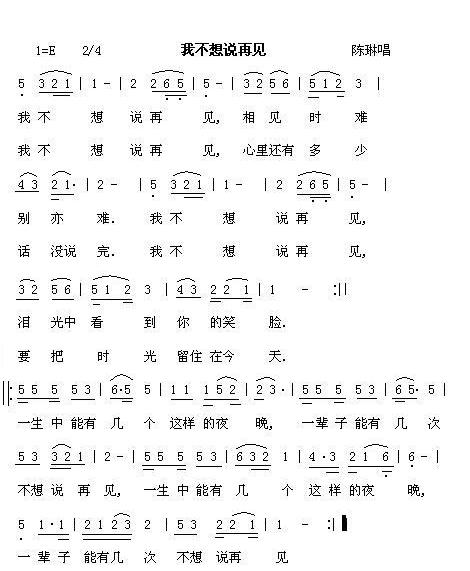 1=E 2/4 我不想说再见 陈琳唱
5 3 2 1 | 1 - | 2 2 6 5 | 5 - | 3 2 5 6 | 5 1 2 3 |
我 不 想 说 再 见, 相 见 时 难
我 不 想 说 再 见, 心里还有 多 少
4 3 2 1· | 2 - | 5 3 2 1 | 1 - | 2 2 6 5 | 5 - |
别 亦 难. 我 不 想 说 再 见,
话 没说 完. 我 不 想 说 再 见,
3 2 5 6 | 5 1 2 3 | 4 3 2 2 1 | 1 - :||
泪 光中 看 到 你 的笑 脸.
要 把 时 光 留住 在今 天.
||: 5 5 5 5 3 | 6·5 5 | 1 1 1 5 2 | 2 3· | 5 5 5 5 3 | 6 5· 5 |
一生 中 能有 几 个 这样 的夜 晚, 一辈 子 能有 几 次
5 3 3 2 1 | 2 - | 2 - | 5 5 5 5 3 | 6 3 2 | 4·3 2 1 6 | 6 - |
不想 说 再 见, 一生 中 能有 几 个 这 样 的夜 晚,
5 1·1 | 2 1 2 3 2 | 5 3 2 2 1 | 1 - :||
一 辈 子 能有几 次 不想 说再 见